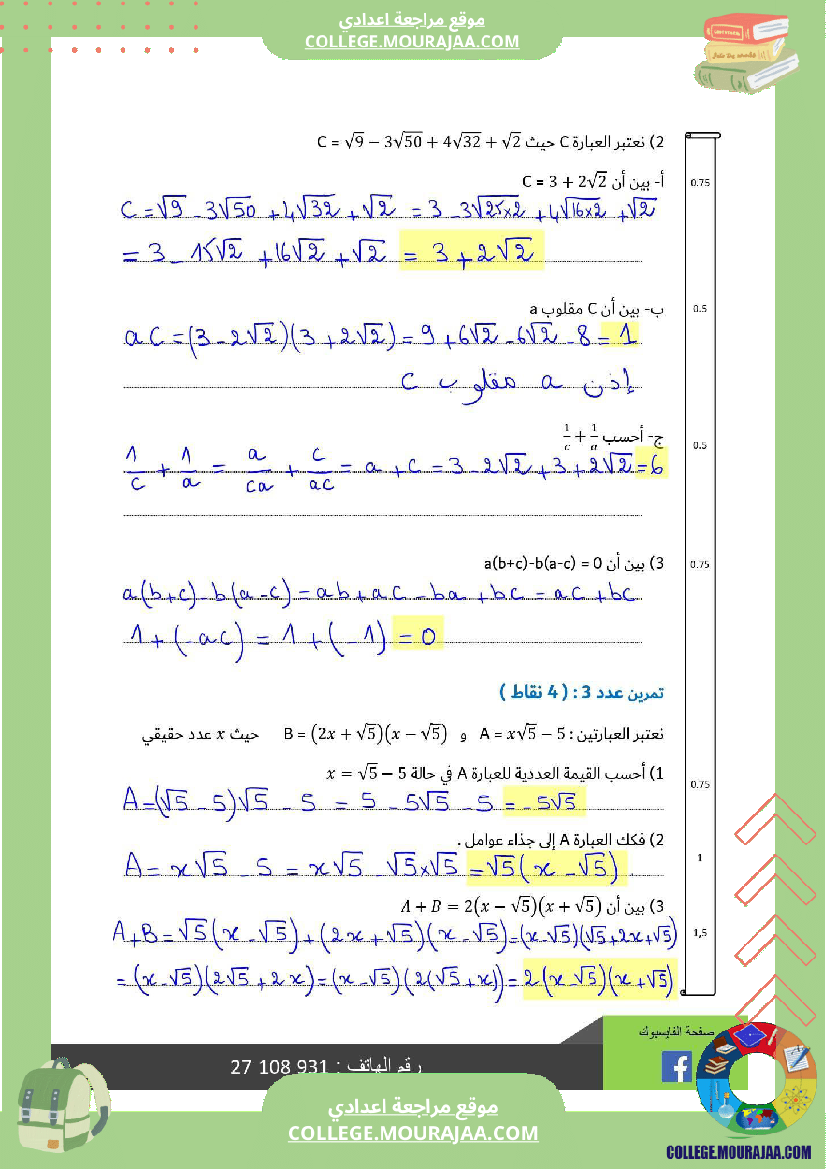 موقع مراجعة اعدادي
COLLEGE.MOURAJAA.COM
2) نعتبر العبارة C حيث C = √9 − 3√50 + 4√32 + √2
أ- بين أن C = 3 + 2√2
0.75
C = √9 - 3√50 + 4√32 + √2 = 3 - 3√25×2 + 4√16×2 + √2
= 3 - 15√2 + 16√2 + √2 = 3 + 2√2
ب- بين أن C مقلوب a
0.5
a C = (3 - 2√2)(3 + 2√2) = 9 + 6√2 - 6√2 - 8 = 1
إذن a مقلوب C
ج- أحسب 1/c + 1/a
0.5
1/c + 1/a = a/ca + c/ac = a + c = 3 - 2√2 + 3 + 2√2 = 6
3) بين أن a(b+c)-b(a-c) = 0
0.75
a(b+c) - b(a-c) = ab + ac - ba + bc = ac + bc
1 + (-ac) = 1 + (-1) = 0
تمرين عدد 3 : ( 4 نقاط )
نعتبر العبارتين : A = x√5 − 5 و B = (2x + √5)(x − √5) حيث x عدد حقيقي
1) أحسب القيمة العددية للعبارة A في حالة x = √5 − 5
0.75
A = (√5 - 5)√5 - 5 = 5 - 5√5 - 5 = - 5√5
2) فكك العبارة A إلى جذاء عوامل .
1
A = x√5 - 5 = x√5 - √5×√5 = √5(x - √5)
3) بين أن A + B = 2(x − √5)(x + √5)
1,5
A + B = √5(x - √5) + (2x + √5)(x - √5) = (x - √5)(√5 + 2x + √5)
= (x - √5)(2√5 + 2x) = (x - √5)(2(√5 + x)) = 2(x - √5)(x + √5)
صفحة الفايسبوك
رقم الهاتف : 27 108 931
موقع مراجعة اعدادي
COLLEGE.MOURAJAA.COM
COLLEGE.MOURAJAA.COM